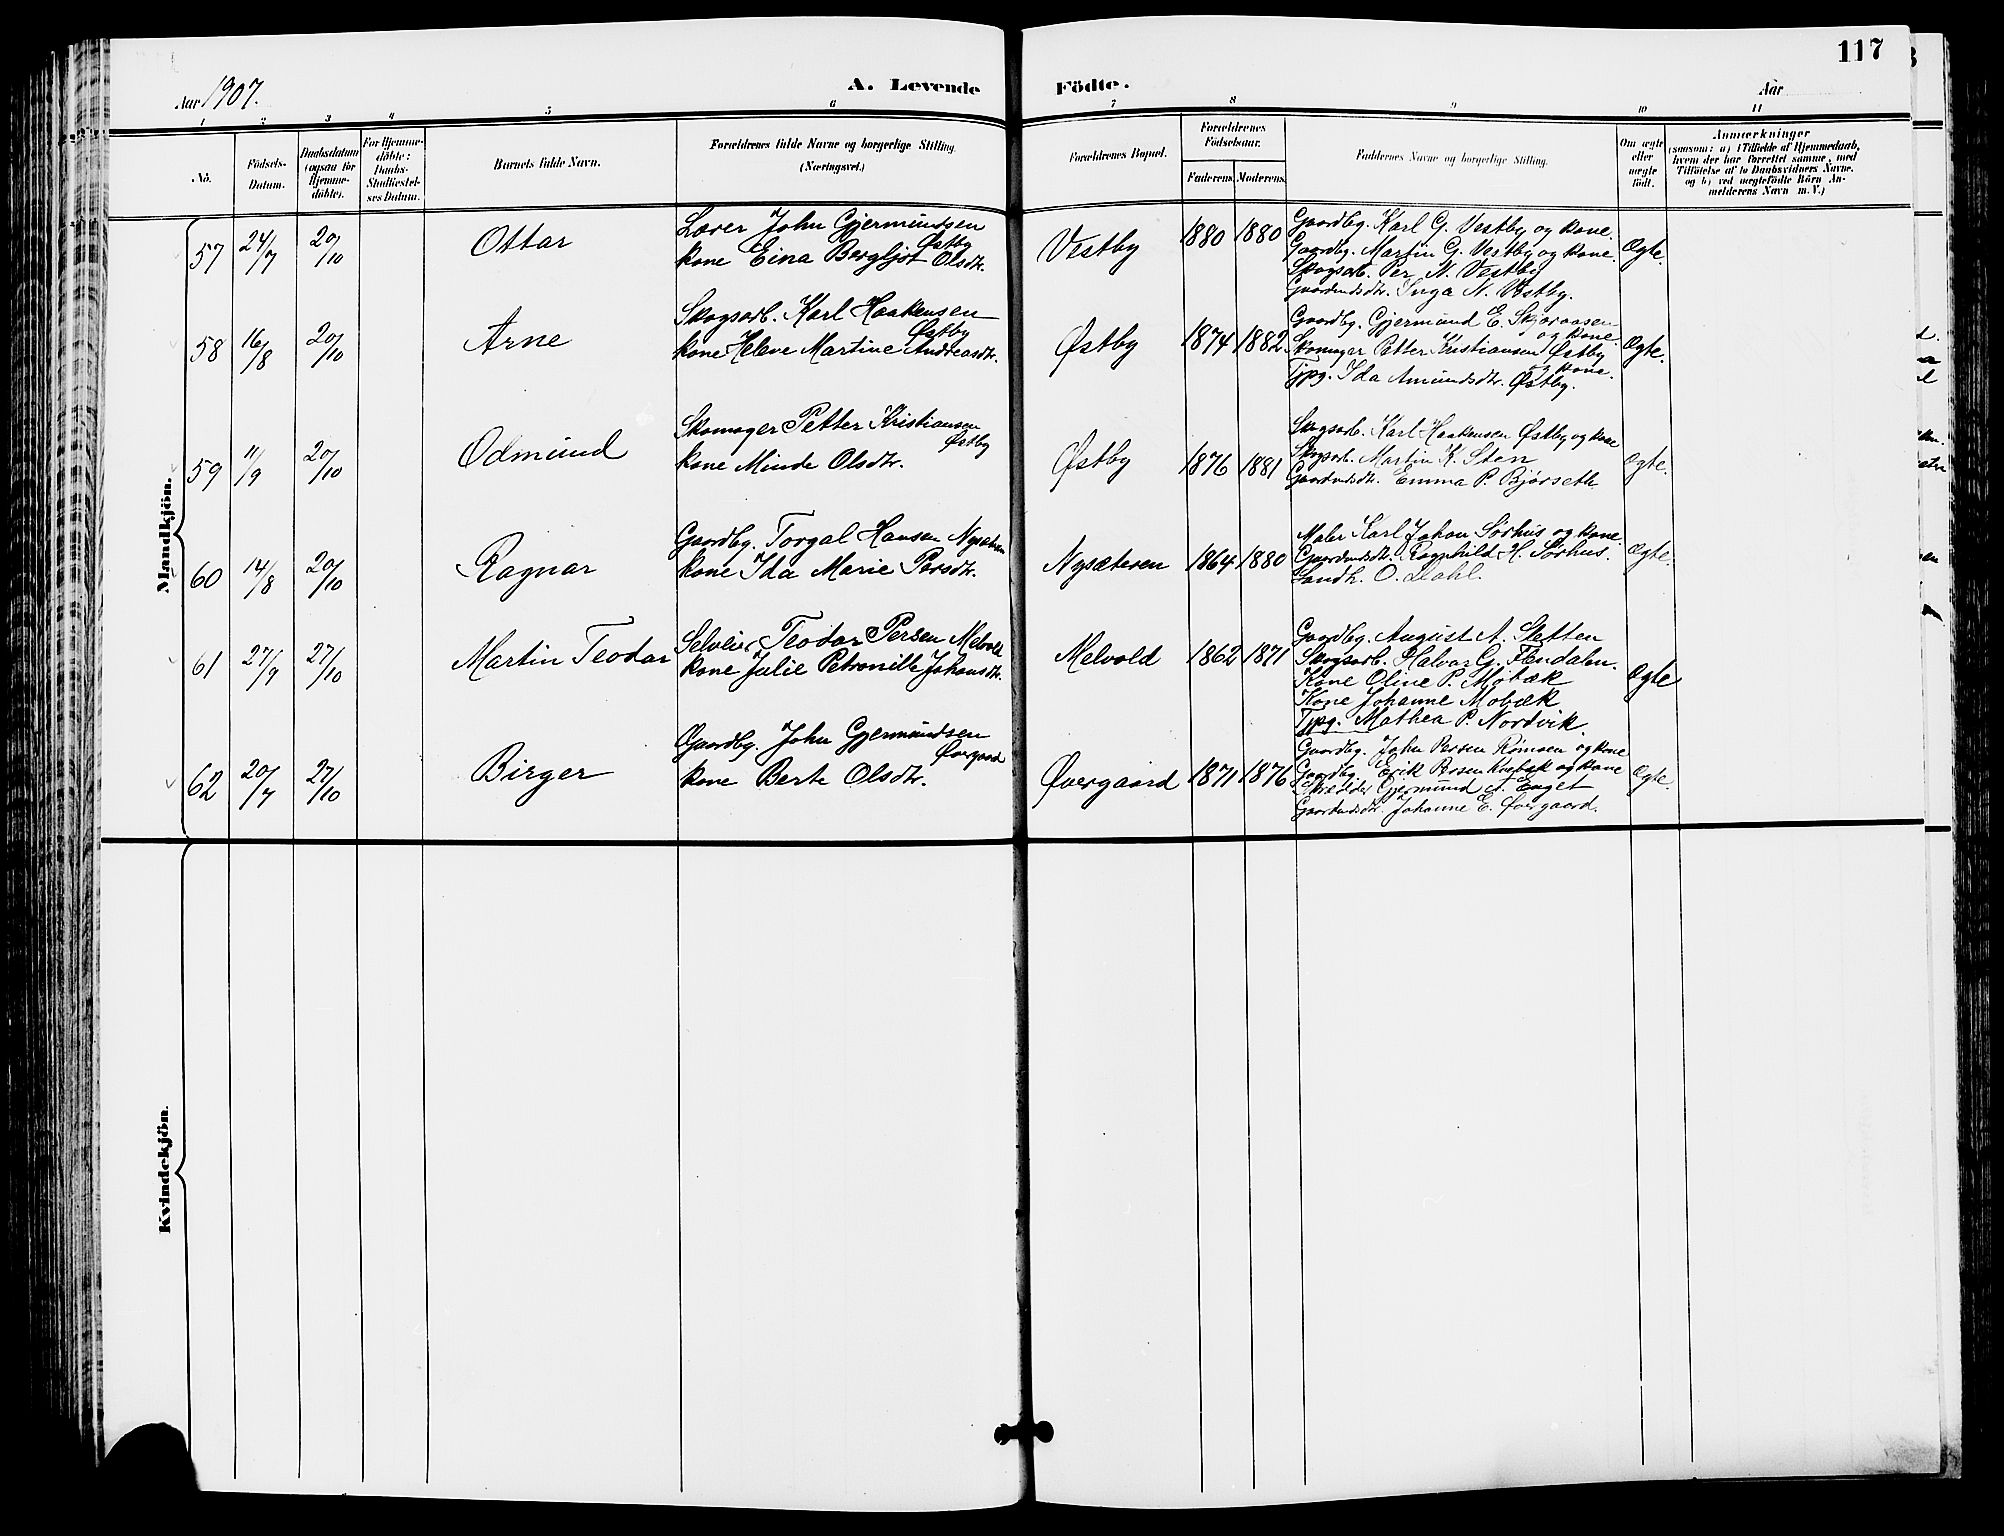 117
Aar 1907.
A. Levende Födte.
Aar
1 2 3 4 5 6 7 8 9 10 11
No.
Födsels-Datum.
Daabsdatum (ogsaa for Hjemme-döbte).
For Hjemme-döbte: Daabs-Stadfæstel-ses Datum.
Barnets fulde Navn.
Forældrenes fulde Navne og borgerlige Stilling. (Næringsvei.)
Forældrenes Bopæl.
Forældrenes Födselsaar.
Faderens. Moderens.
Faddernes Navne og borgerlige Stilling.
Om ægte eller uægte födt.
Anmærkninger
(saasom: a) i Tilfælde af Hjemmedaab,
hvem der har forrettet samme, med
Tilföielse af to Daabsvidners Navne,
og b) ved uægtefödte Börn An-
melderens Navn m. V.)
Mandkjön.
57 24/7 20/10 Ottar
Lærer John Gjermundsen
Østby
kone Eina Bergljot Olsdtr.
Vestby 1880 1880
Gaardbg. Karl G. Vestby og kone.
Gaardbg. Martin G. Vestby og kone.
Skogsarb. Per N. Vestby
Gaardmdsdtr. Inga N. Vestby.
Ægte.
58 16/8 20/10 Arne
Skogsarb. Karl Haakensen
Østby
kone Helene Martine Andreasdtr.
Østby 1874 1882
Gaardbg. Gjermund E. Skjæraasen
og kone.
Skomager Petter Kristiansen Østby
og kone.
Tjpg. Ida Amundsdtr. Østby.
Ægte.
59 11/9 20/10 Odmund
Skomager Petter Kristiansen
Østby
kone Minda Olsdtr.
Østby 1876 1881
Skogsarb. Karl Haakensen Østby og kone
Skogsarb. Martin K. Sten
Gaardmdsdtr. Emma P. Bjørseth
Ægte.
60 14/8 20/10 Ragnar
Gaardbg. Torgal Hansen Nysæteren
kone Ida Marie Persdtr.
Nysæteren 1864 1880
Maler Karl Johan Sørhus og kone.
Gaardmdsdtr. Ragnhild H. Sørhus.
Landh. O. Dahl.
Ægte.
61 27/9 27/10 Martin Teodor
Selveier Teodor Persen Melvold
kone Julie Petronille Johansdtr.
Melvold 1862 1871
Gaardbg. August A. Sletten
Skogsarb. Halvor G. Flendalen.
Kone Oline P. Mobæk
Kone Johanne Mobæk
Tjpg. Mathea P. Nordvik.
Ægte
62 20/7 27/10 Birger
Gaardbg. John Gjermundsen
Øvergaard
kone Berte Olsdtr.
Øvergaard 1871 1876
Gaardbg. John Persen Rømoen og kone
Gaardbg. Erik Persen Kvebæk og kone
Skrædder Gjermund A. Enget
Gaardmdsdtr. Johanne E. Øvergaard.
Ægte.
Kvindekjön.